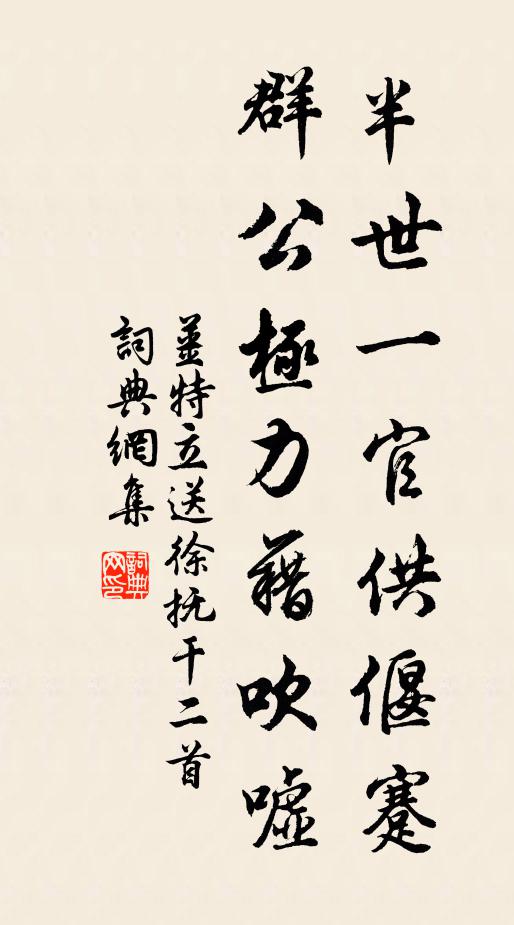 半世一官供偃蹇
群公極力藉吹噓
薑特立送徐抚干二首
詞典網集
詞典網印